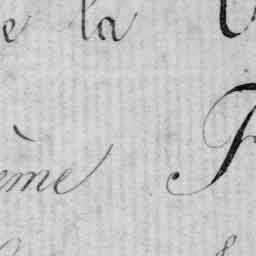 e la
ème F